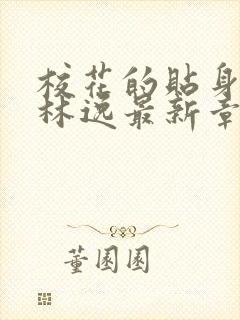 校花的贴身
林逸最新章
董园园